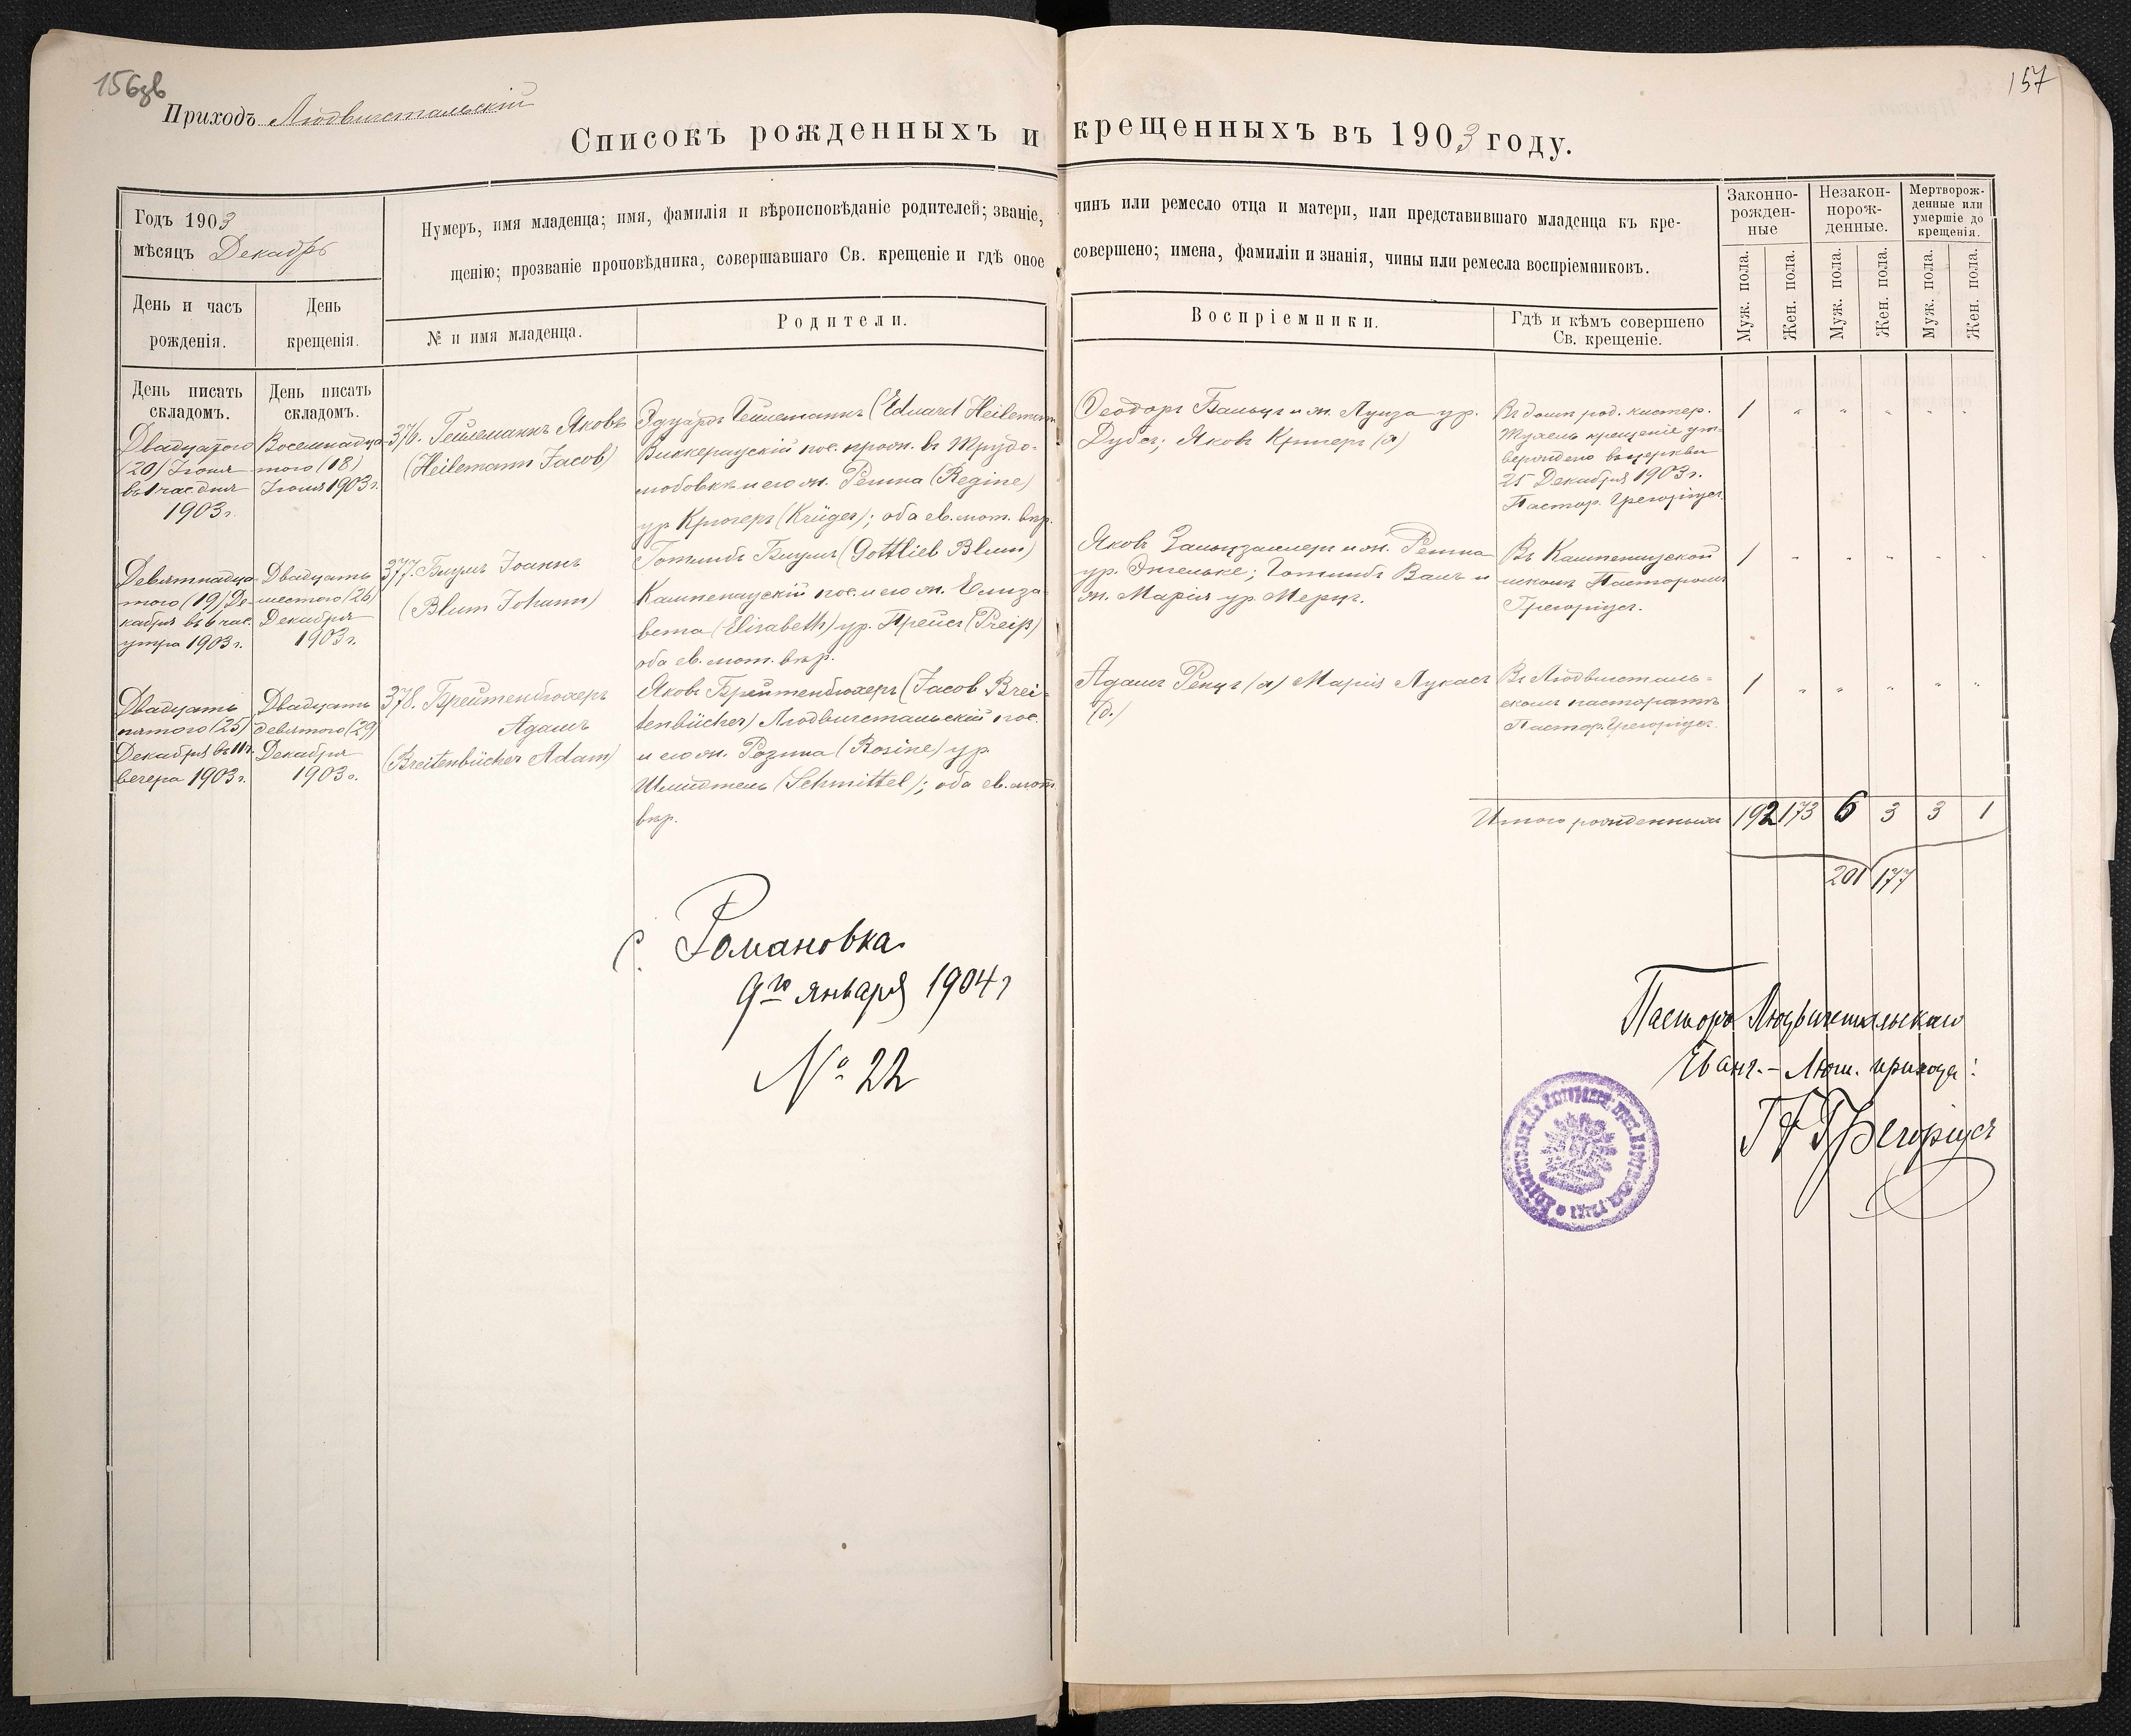 156зв
157
Приходъ Людвигстальскій
Списокъ рожденныхъ и крещенныхъ въ 1903 году.
Годъ 1903
мѣсяцъ Декабрь
Нумеръ, имя младенца; имя, фамилія и вѣроисповѣданіе родителей; званіе, чинъ или ремесло отца и матери, или представившаго младенца къ кре-
щенію; прозваніе проповѣдника, совершавшаго Св. крещеніе и гдѣ оное совершено; имена, фамиліи и знанія, чины или ремесла воспріемниковъ.
Законно-
рожден-
ные
Незакон-
норож-
денные.
Мертворож-
денные или
умершіе до
крещенія.
Муж. пола.
Жен. пола.
Муж. пола.
Жен. пола.
Муж. пола.
Жен. пола.
День и часъ
рожденія.
День
крещенія.
№ и имя младенца.
Родители.
Воспріемники.
Гдѣ и кѣмъ совершено
Св. крещеніе.
День писать
складомъ.
День писать
складомъ.
Двадцатого
(20) Іюня
въ 1 час. дня
1903 г.
Восемнадца-
того (18)
1903 г.
376. Гейлеманнъ Яковъ
(Heilemann Jacob)
Эдуардъ Гейлеманнъ (Eduard Heilemann
Виккераускій пос. прож. въ Трудо-
любовкѣ и его ж. Регина (Regine)
ур. Крюгеръ (Krüger); оба ев. лют. вѣр.
Теодоръ Бальцъ и ж. Луиза ур.
Яковъ Кригеръ (х)
Въ домѣ род. кистер.
крещеніе ут-
верждено въ церкви
25 Декабря 1903 г.
Пастор. Грегоріусъ.
1 " " " " "
Девятнадца-
того (19) Де-
кабря въ 6 час.
утра 1903 г.
Двадцать
шестого (26)
Декабря
1903 г.
377. Блумъ Іоаннъ
(Blum Johann)
Готлибъ Блумъ (Gottlieb Blum)
Кампенаускій пос. и его ж. Елиза-
вета (Elisabeth) ур. Прейсъ (Preiß)
оба ев. лют. вѣр.
Яковъ Зальцзаилеръ и ж. Регина
ур. Энгельке; Готлибъ Валъ и
ж. Марія ур. Мерцъ.
Въ Кампенауской
школѣ Пасторомъ
Грегоріусъ.
1 " " " " "
Двадцать
пятого (25)
Декабря въ 11 ч.
вечера 1903 г.
Двадцать
девятого (29)
Декабря
1903 г.
378. Брейтенбюхеръ
Адамъ
(Breitenbücher Adam)
Яковъ Брейтенбюхеръ (Jacob Brei-
tenbücher) Людвигстальскій пос.
и его ж. Розина (Rosine) ур.
Шмидтель (Schmittel); оба ев. лют.
вѣр.
Адамъ Ренцъ (х) Марія Лукасъ
(д.)
Въ Людвигсталь-
скомъ пасторатѣ
Пастор. Грегоріусъ.
1 " " " " "
Итого рожденныхъ 192 173 6 3 3 1
201 177
с. Романовка
9го января 1904 г
№ 22
Пасторъ Людвигстальскаго
Еванг.-Лют. прихода:
Грегоріусъ